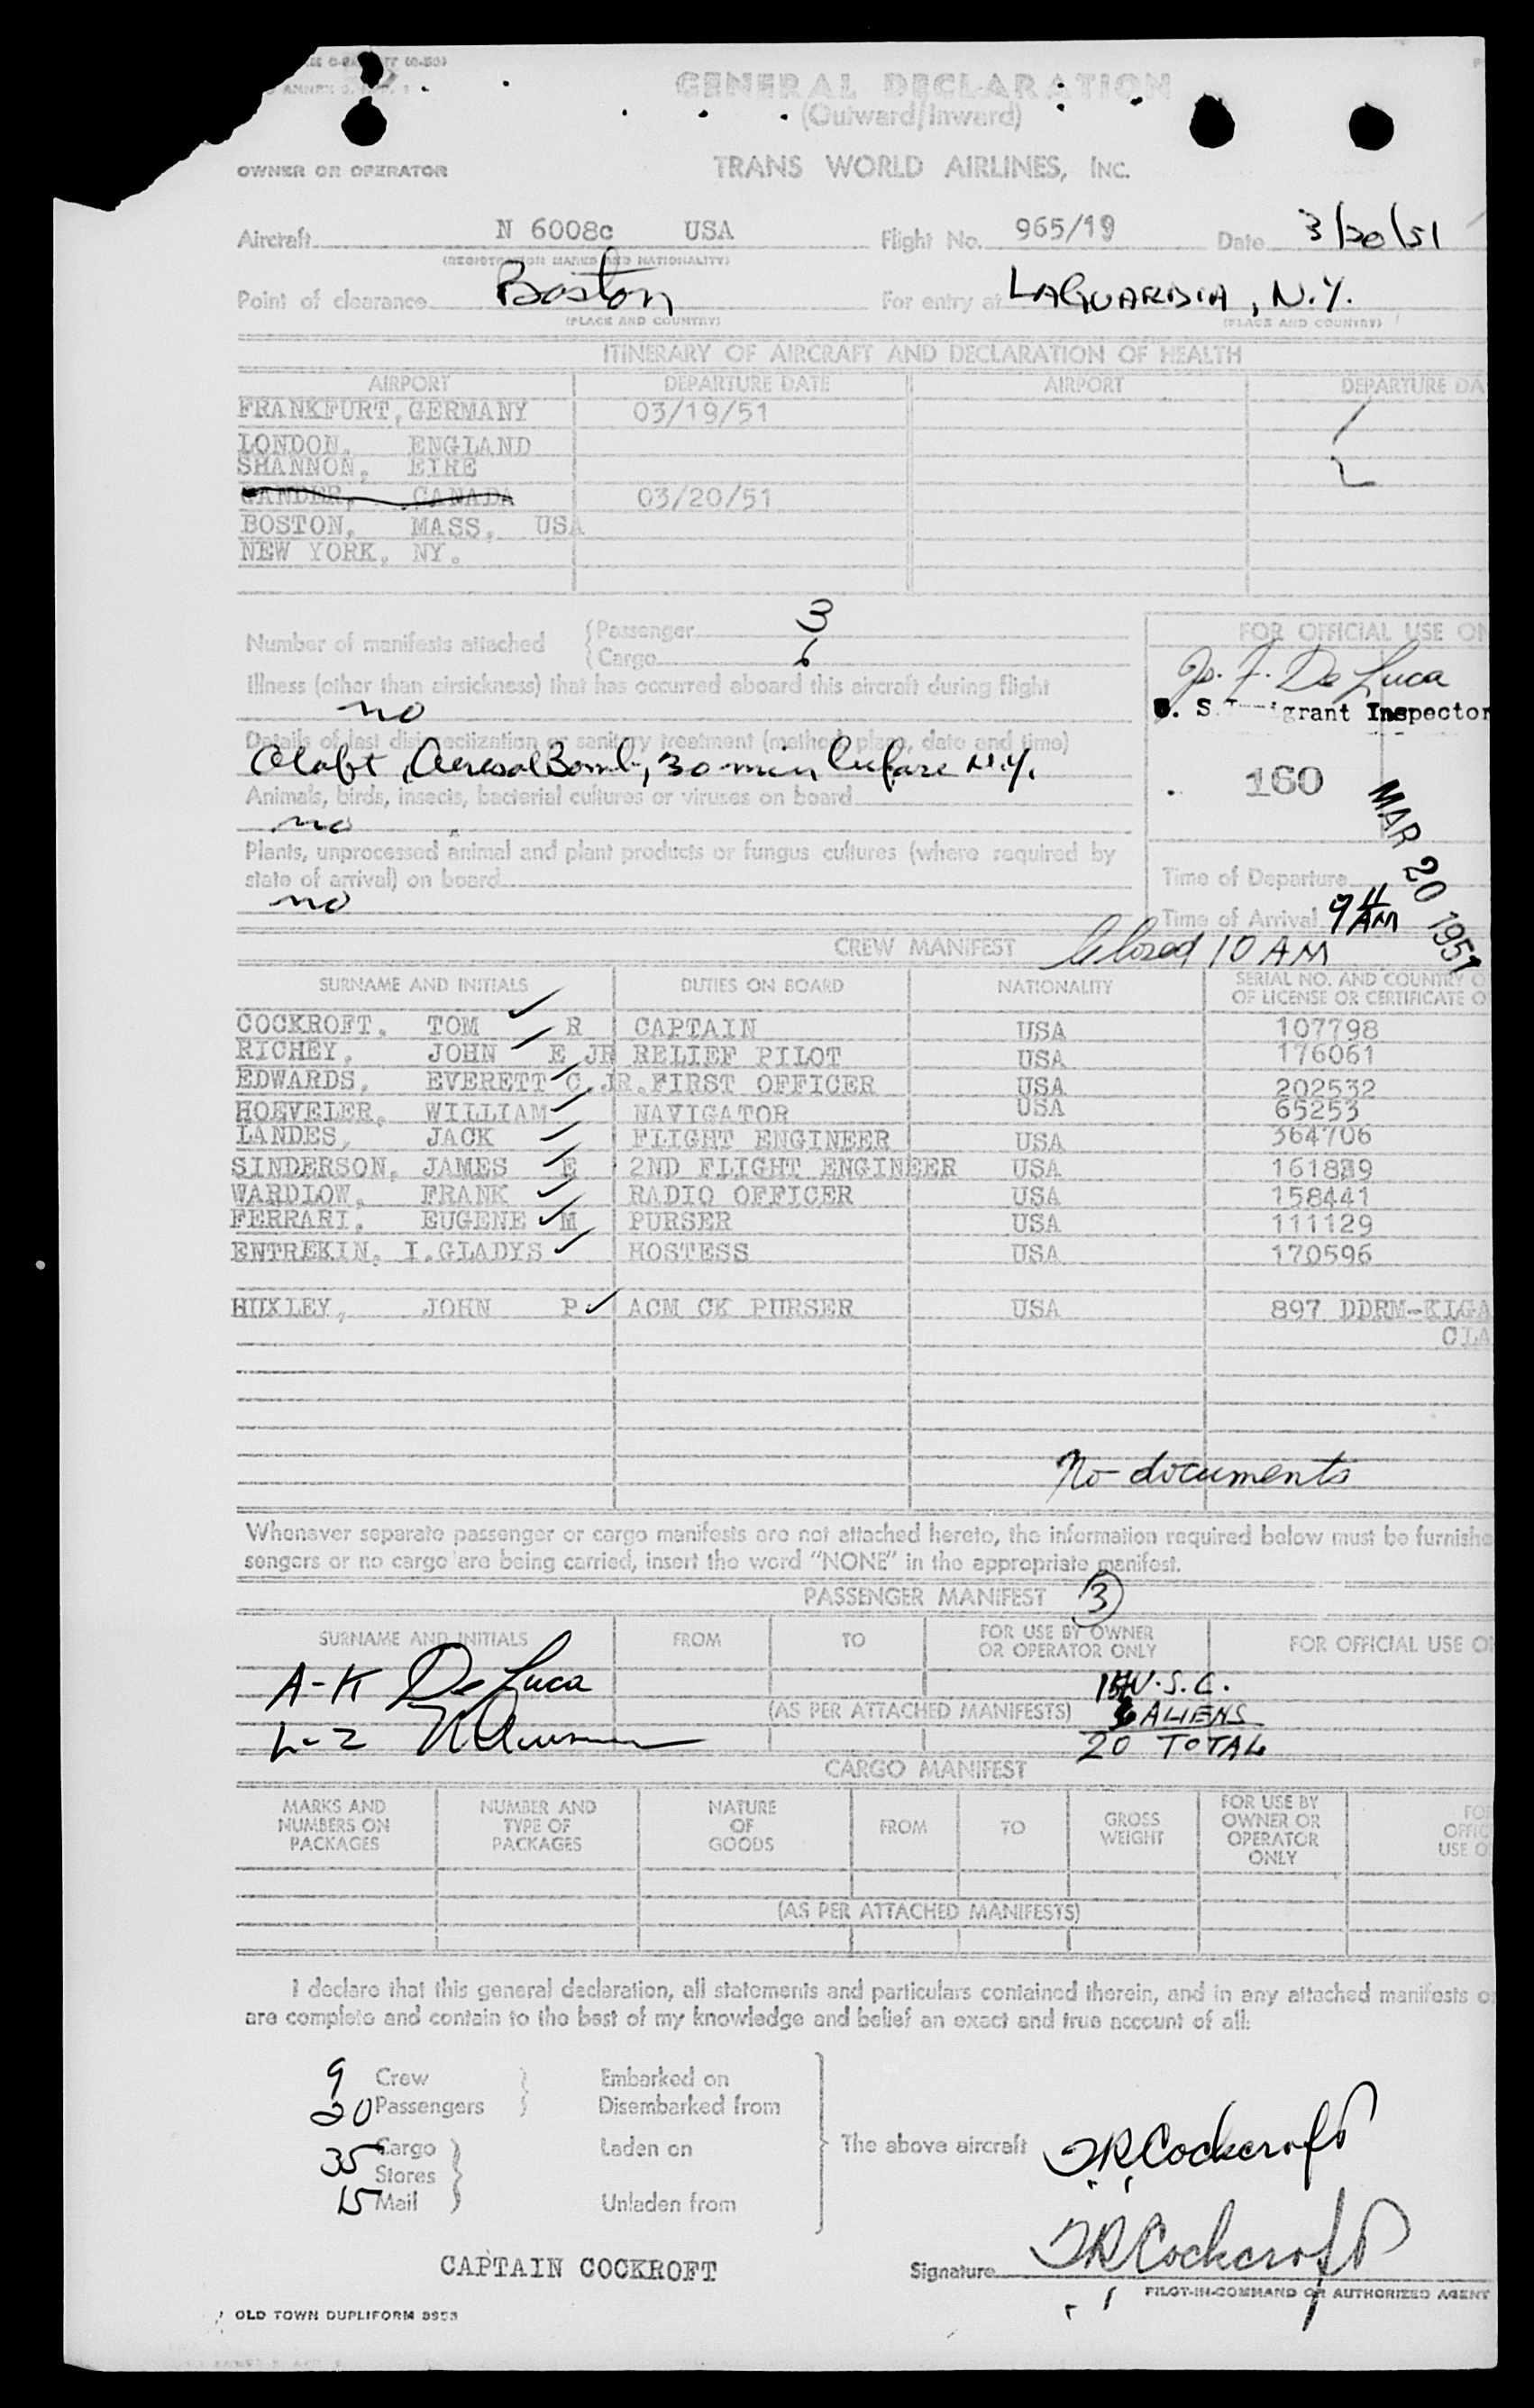 GENERAL DECLARATION
(Outward/Inward)
OWNER OR OPERATOR
TRANS WORLD AIRLINES, INC.
Aircraft N 6008c USA Flight No. 965/19 Date 3/20/51
(REGISTRATION MARKS AND NATIONALITY)
Point of clearance Boston For entry at LAGUARDIA, N.Y.
(PLACE AND COUNTRY) (PLACE AND COUNTRY)
ITINERARY OF AIRCRAFT AND DECLARATION OF HEALTH
AIRPORT DEPARTURE DATE AIRPORT DEPARTURE DA
FRANKFURT, GERMANY 03/19/51
LONDON, ENGLAND
SHANNON, EIRE
GANDER, CANADA 03/20/51
BOSTON, MASS, USA
NEW YORK, NY.
Number of manifests attached {Passenger 3
{Cargo 6
FOR OFFICIAL USE ON
Jo. F. De Luca
U. S. Immigrant Inspector
160
MAR 20 1951
Illness (other than airsickness) that has occurred aboard this aircraft during flight
no
Details of last disinsectization or sanitary treatment (method, place, date and time)
Aerosol Bomb, 30 min before N.Y.
Animals, birds, insects, bacterial cultures or viruses on board
no
Plants, unprocessed animal and plant products or fungus cultures (where required by
state of arrival) on board
no
Time of Departure
Time of Arrival 9 AM
CREW MANIFEST Closed 10 AM
SURNAME AND INITIALS DUTIES ON BOARD NATIONALITY SERIAL NO. AND COUNTRY O
OF LICENSE OR CERTIFICATE O
COCKROFT, TOM R CAPTAIN USA 107798
RICHEY, JOHN E JR RELIEF PILOT USA 176061
EDWARDS, EVERETT C.JR. FIRST OFFICER USA 202532
HOEVELER, WILLIAM NAVIGATOR USA 65253
LANDES, JACK FLIGHT ENGINEER USA 364706
SINDERSON, JAMES E 2ND FLIGHT ENGINEER USA 161839
WARDLOW, FRANK RADIO OFFICER USA 158441
FERRARI, EUGENE M PURSER USA 111129
ENTREKIN, I.GLADYS HOSTESS USA 170596
HUXLEY, JOHN P ACM CK PURSER USA 897 DDRM-KLGA
CLA
No documents
Whenever separate passenger or cargo manifests are not attached hereto, the information required below must be furnishe
sengers or no cargo are being carried, insert the word "NONE" in the appropriate manifest.
PASSENGER MANIFEST 3
SURNAME AND INITIALS FROM TO FOR USE BY OWNER
OR OPERATOR ONLY FOR OFFICIAL USE O
A-K De Luca
U.S.C.
(AS PER ATTACHED MANIFESTS) ALIENS
L-Z
20 TOTAL
CARGO MANIFEST
MARKS AND
NUMBERS ON
PACKAGES
NUMBER AND
TYPE OF
PACKAGES
NATURE
OF
GOODS
FROM
TO
GROSS
WEIGHT
FOR USE BY
OWNER OR
OPERATOR
ONLY
FOR
OFFIC
USE O
(AS PER ATTACHED MANIFESTS)
I declare that this general declaration, all statements and particulars contained therein, and in any attached manifests o
are complete and contain to the best of my knowledge and belief an exact and true account of all:
9 Crew Embarked on
20 Passengers Disembarked from
35 Cargo Laden on The above aircraft TR Cockcroft
Stores
15 Mail Unladen from
CAPTAIN COCKROFT Signature TR Cockcroft
PILOT-IN-COMMAND OR AUTHORIZED AGENT
OLD TOWN DUPLIFORM 8953